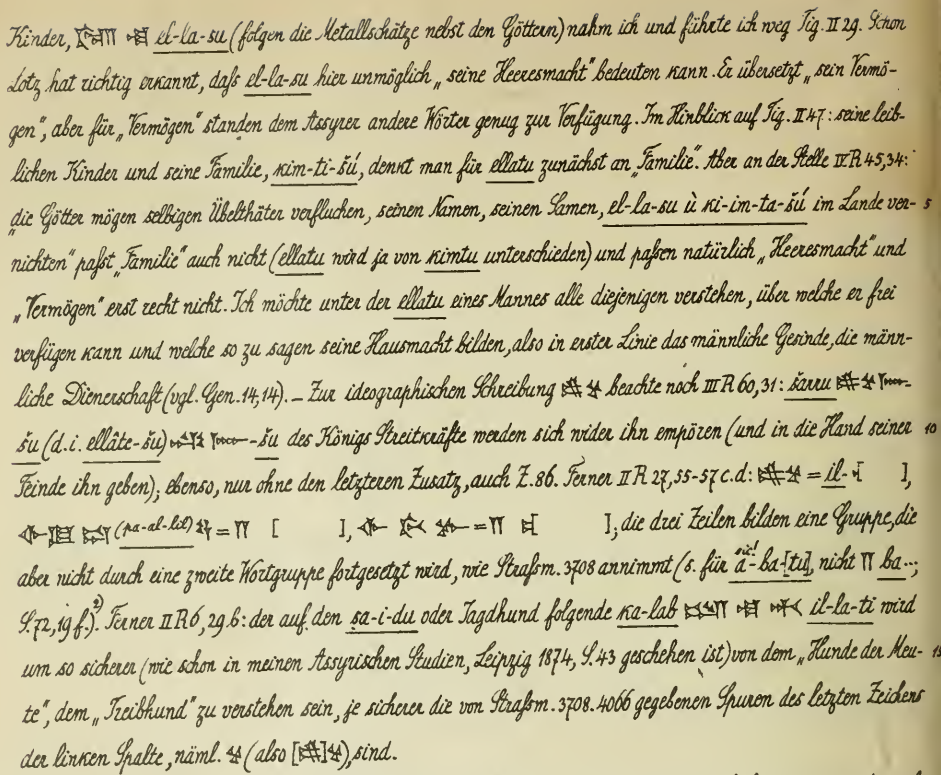 Kinder, 𒂖𒆷 el-la-su (folgen die Metallschätze nebst den Göttern) nahm ich und führte ich weg Tig. II 29. Schon
Lotz hat richtig erkannt, daſs el-la-su hier unmöglich „seine Heeresmacht" bedeuten kann. Er übersetzt „sein Vermö-
gen", aber für „Vermögen" standen dem Assyrer andere Wörter genug zur Verfügung. Im Hinblick auf Tig. II 47: seine leib-
lichen Kinder und seine Familie, kim-ti-šú, denkt man für ellatu zunächst an „Familie". Aber an der Stelle IV R 45,34:
„die Götter mögen selbigen Übelthäter verfluchen, seinen Namen, seinen Samen, el-la-su ù ki-im-ta-šú im Lande ver- 5
nichten" paſst „Familie" auch nicht (ellatu wird ja von kimtu unterschieden) und paſsen natürlich „Heeresmacht" und
„Vermögen" erst recht nicht. Ich möchte unter der ellatu eines Mannes alle diejenigen verstehen, über welche er frei
verfügen kann und welche so zu sagen seine Hausmacht bilden, also in erster Linie das männliche Gesinde, die männ-
liche Dienerschaft (vgl. Gen. 14,14). – Zur ideographischen Schreibung beachte noch III R 60,31: šarru
šu (d.i. ellâte-šu) -šu des Königs Streitkräfte werden sich wider ihn empören (und in die Hand seiner 10
Feinde ihn geben); ebenso, nur ohne den letzteren Zusatz, auch Z. 86. Ferner II R 27, 55-57 c.d: = il- [ ],
= [ ], = [ ]; die drei Zeilen bilden eine Gruppe, die
aber nicht durch eine zweite Wortgruppe fortgesetzt wird, wie Straſsm. 3708 annimmt (s. für a-ba-[tu], sic! nicht ba...;
S. 72, 19 f.). 2) Ferner II R 6, 29.b: der auf den sa-i-du oder Jagdhund folgende ka-lab il-la-ti wird
um so sicherer (wie schon in meinen Assyrischen Studien, Leipzig 1874, S. 43 geschehen ist) von dem „Hunde der Meu- 15
te", dem „Treibhund" zu verstehen sein, je sicherer die von Straſsm. 3708. 4066 gegebenen Spuren des letzten Zeichens
der linken Spalte, näml. (also [ ] ), sind.